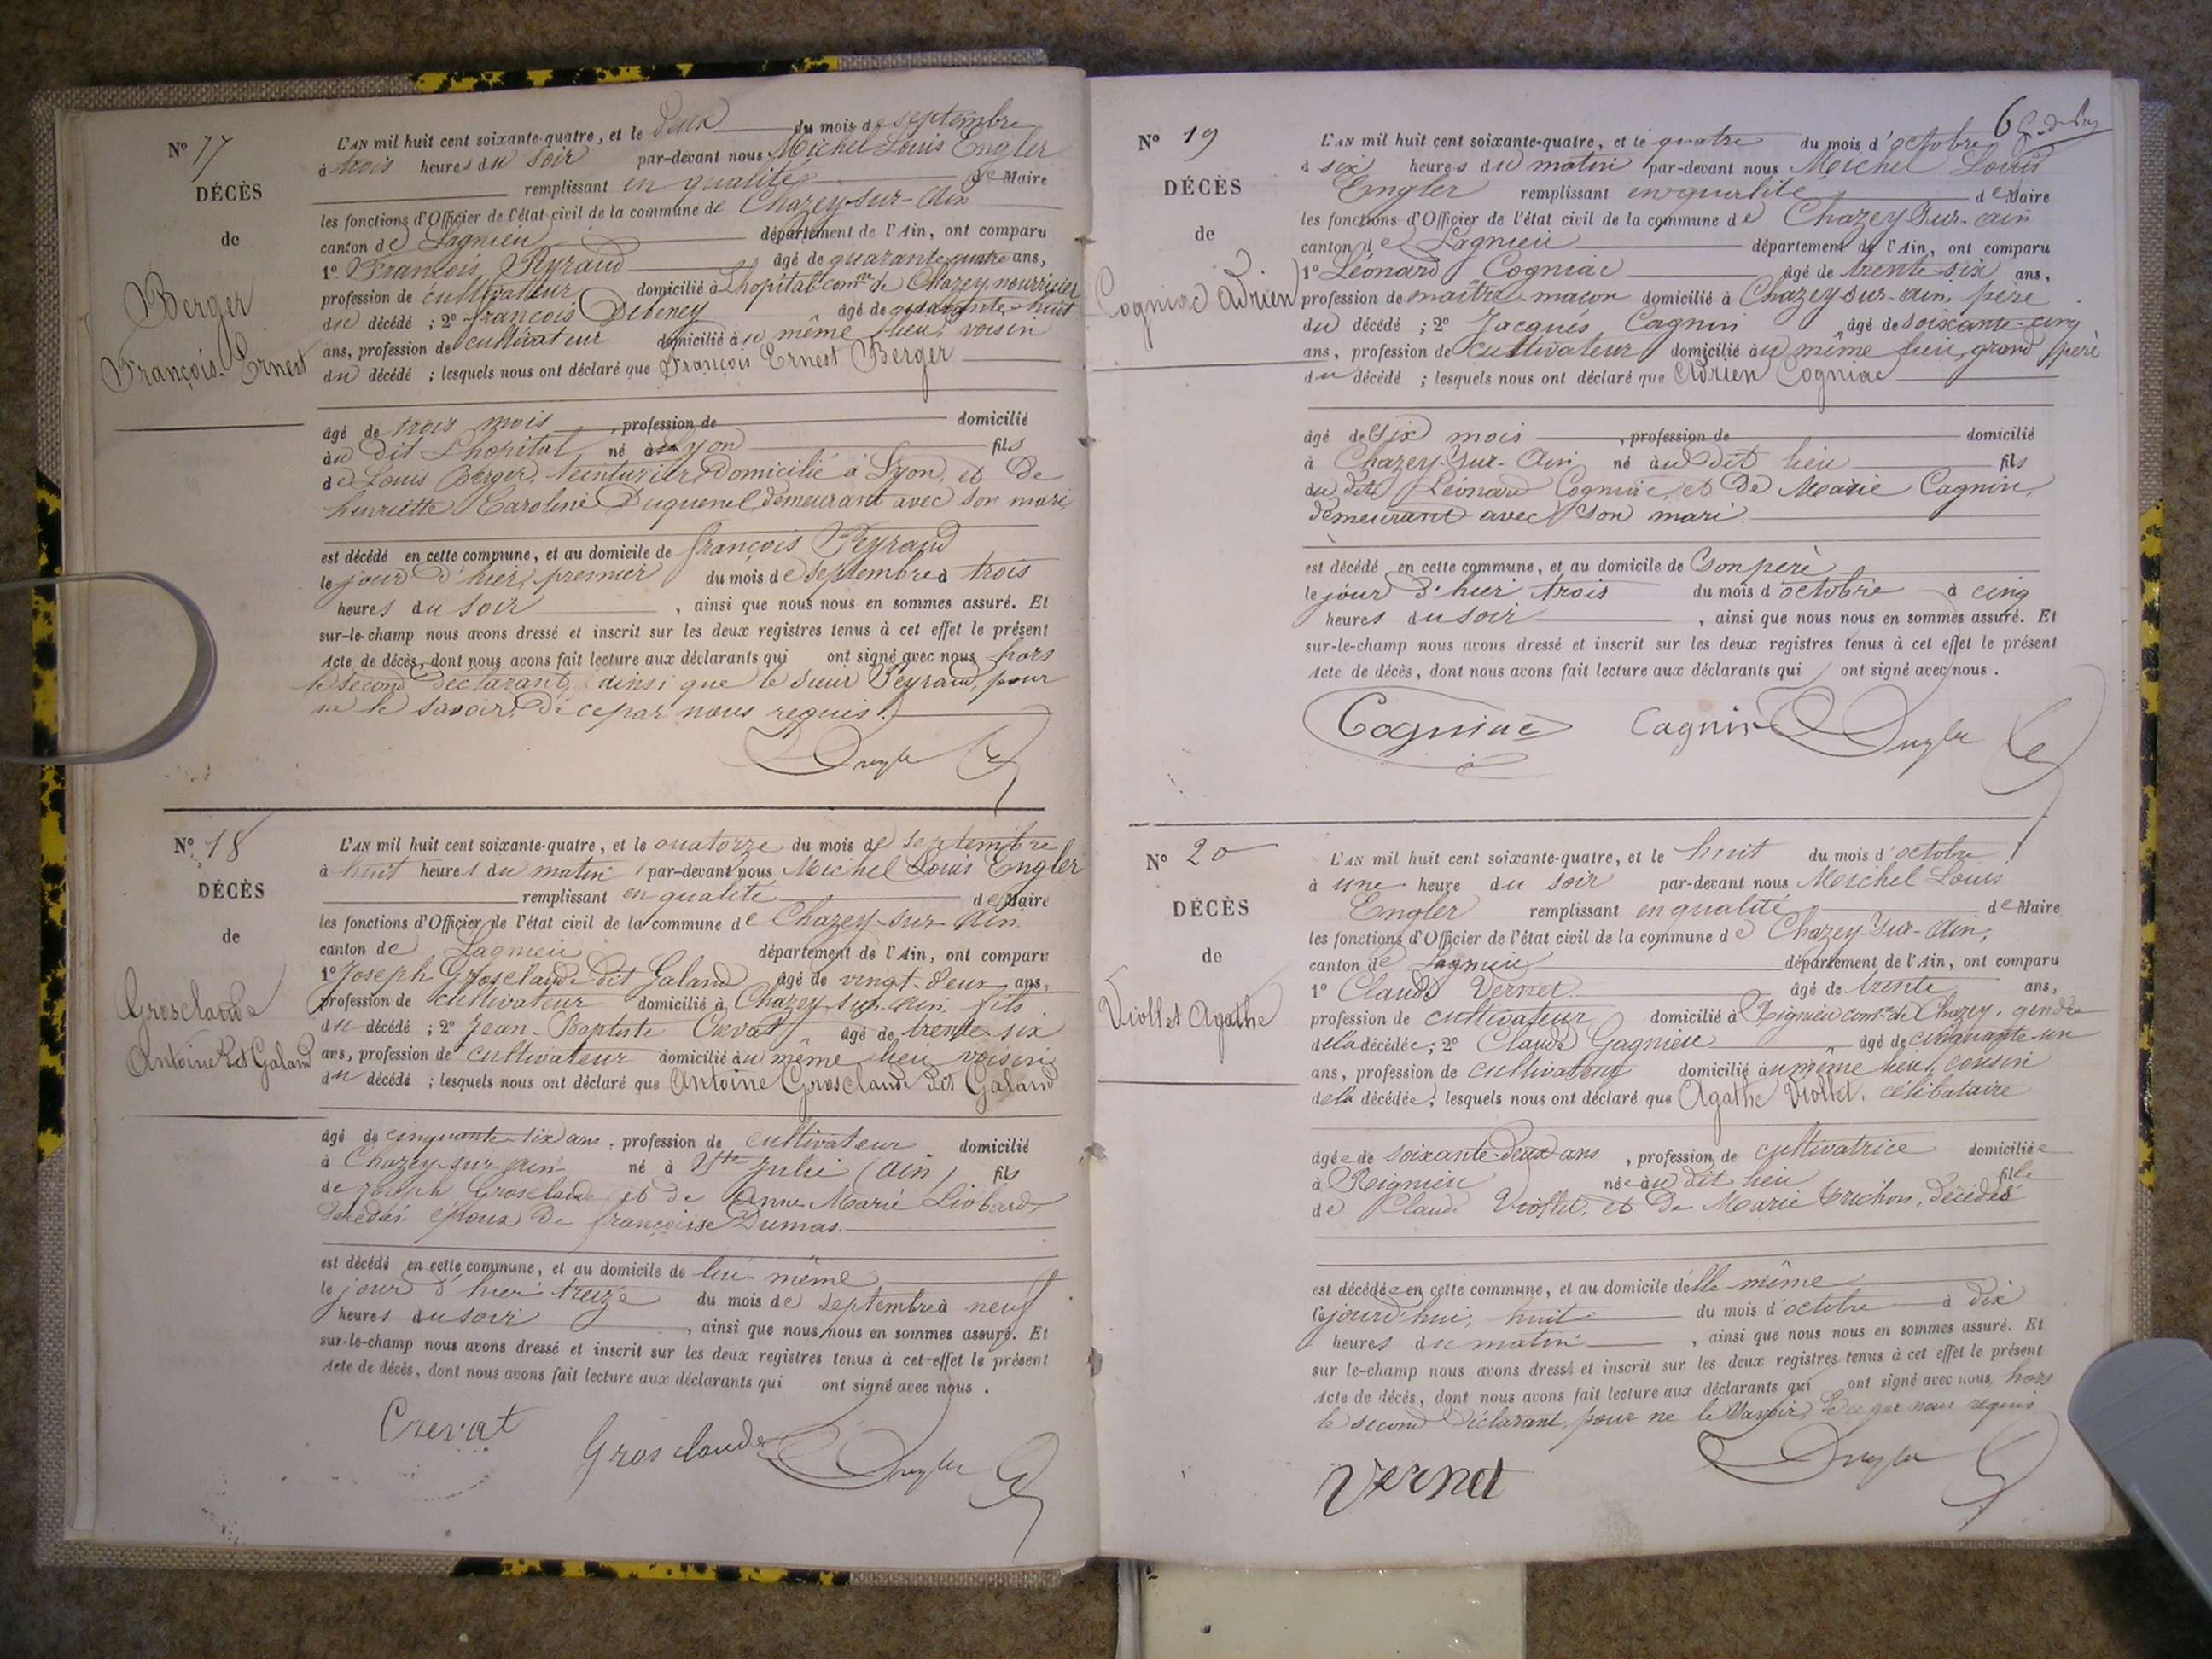 N° 17
DÉCÈS
de
Berger
François-Ernest
L'AN mil huit cent soixante-quatre, et le deux du mois de septembre
à trois heures du soir par-devant nous Michel Louis Engler
remplissant en qualité de Maire
les fonctions d'Officier de l'état civil de la commune de Chazey-sur-Ain
canton de Lagnieu département de l'Ain, ont comparu
1° François Peyraud âgé de quarante quatre ans,
profession de cultivateur domicilié à Lhopital comne de Chazey, nourricier
du décédé ; 2° françois Debeney âgé de quarante-huit
ans, profession de cultivateur domicilié au même lieu, voisin
du décédé ; lesquels nous ont déclaré que François Ernest Berger
âgé de trois mois , profession de domicilié
au dit Lhopital né à Lyon fils
de Louis Berger, teinturier, domicilié à Lyon, et de
henriette Caroline Duquenel, demeurant avec son mari
est décédé en cette commune, et au domicile de françois Peyraud
le jour d'hier, premier du mois de septembre à trois
heures du soir , ainsi que nous nous en sommes assuré. Et
sur-le-champ nous avons dressé et inscrit sur les deux registres tenus à cet effet le présent
Acte de décès, dont nous avons fait lecture aux déclarants qui ont signé avec nous hors
le second déclarant, ainsi que le sieur Peyraud, pour
ne le savoir, de ce par nous requis.
Engler
N° 18
DÉCÈS
de
Grosclaude
Antoine dit Galand
L'AN mil huit cent soixante-quatre, et le quatorze du mois de septembre
à huit heures du matin par-devant nous Michel Louis Engler
remplissant en qualité de Maire
les fonctions d'Officier de l'état civil de la commune de Chazey-sur-Ain
canton de Lagnieu département de l'Ain, ont comparu
1° Joseph Grosclaude dit Galand âgé de vingt-deux ans,
profession de cultivateur domicilié à Chazey-sur-ain, fils
du décédé ; 2° Jean-Baptiste Crevat âgé de trente-six
ans, profession de cultivateur domicilié au même lieu, voisin
du décédé ; lesquels nous ont déclaré que Antoine Grosclaude dit Galand
âgé de cinquante-six ans, profession de cultivateur domicilié
à Chazey-sur-ain né à Ste Julie (ain) fils
de Joseph Grosclaude et de Anne Marie Liobard,
décédés, époux de françoise Dumas.
est décédé en cette commune, et au domicile de lui-même
le jour d'hier treize du mois de septembre à neuf
heures du soir , ainsi que nous nous en sommes assuré. Et
sur-le-champ nous avons dressé et inscrit sur les deux registres tenus à cet effet le présent
Acte de décès, dont nous avons fait lecture aux déclarants qui ont signé avec nous .
Crevat
Grosclaude Engler
6
N° 19
DÉCÈS
de
Cogniac Adrien
L'AN mil huit cent soixante-quatre, et le quatre du mois d'octobre
à six heures du matin par-devant nous Michel Louis
Engler remplissant en qualité de Maire
les fonctions d'Officier de l'état civil de la commune de Chazey-sur-ain
canton de Lagnieu département de l'Ain, ont comparu
1° Léonard Cogniac âgé de trente-six ans,
profession de maître-maçon domicilié à Chazey-sur-ain, père
du décédé ; 2° Jacques Cagnin âgé de soixante-cinq
ans, profession de cultivateur domicilié au même lieu, grand père
du décédé ; lesquels nous ont déclaré que Adrien Cogniac
âgé de six mois , profession de domicilié
à Chazey-sur-Ain né au dit lieu fils
du dit Léonard Cogniac, et de Marie Cagnin,
demeurant avec son mari
est décédé en cette commune, et au domicile de son père
le jour d'hier trois du mois d'octobre à cinq
heures du soir , ainsi que nous nous en sommes assuré. Et
sur-le-champ nous avons dressé et inscrit sur les deux registres tenus à cet effet le présent
Acte de décès, dont nous avons fait lecture aux déclarants qui ont signé avec nous .
Cogniac Cagnin Engler
N° 20
DÉCÈS
de
Viollet Agathe
L'AN mil huit cent soixante-quatre, et le huit du mois d'octobre
à une heure du soir par-devant nous Michel Louis
Engler remplissant en qualité de Maire
les fonctions d'Officier de l'état civil de la commune de Chazey-sur-Ain,
canton de Lagnieu département de l'Ain, ont comparu
1° Claude Vernet âgé de trente ans,
profession de cultivateur domicilié à Rignieu comne de Chazey, gendre
de la décédée ; 2° Claude Gagnieu âgé de cinquante-un
ans, profession de cultivateur domicilié au même lieu, cousin
de la décédée ; lesquels nous ont déclaré que Agathe Viollet, célibataire
âgée de soixante-deux ans , profession de cultivatrice domiciliée
à Rignieu née au dit lieu fille
de Claude Viollet, et de Marie Trichon, décédés
est décédée en cette commune, et au domicile d'elle même
Cejourd'hui, huit du mois d'octobre à dix
heures du matin , ainsi que nous nous en sommes assuré. Et
sur le-champ nous avons dressé et inscrit sur les deux registres tenus à cet effet le présent
Acte de décès, dont nous avons fait lecture aux déclarants qui ont signé avec nous hors
le second déclarant, pour ne le savoir, de ce par nous requis
Vernet Engler